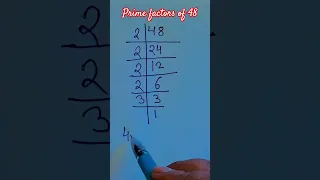 Prime factors of 48
2 | 48
2 | 24
2 | 12
2 | 6
3 | 3
1
4